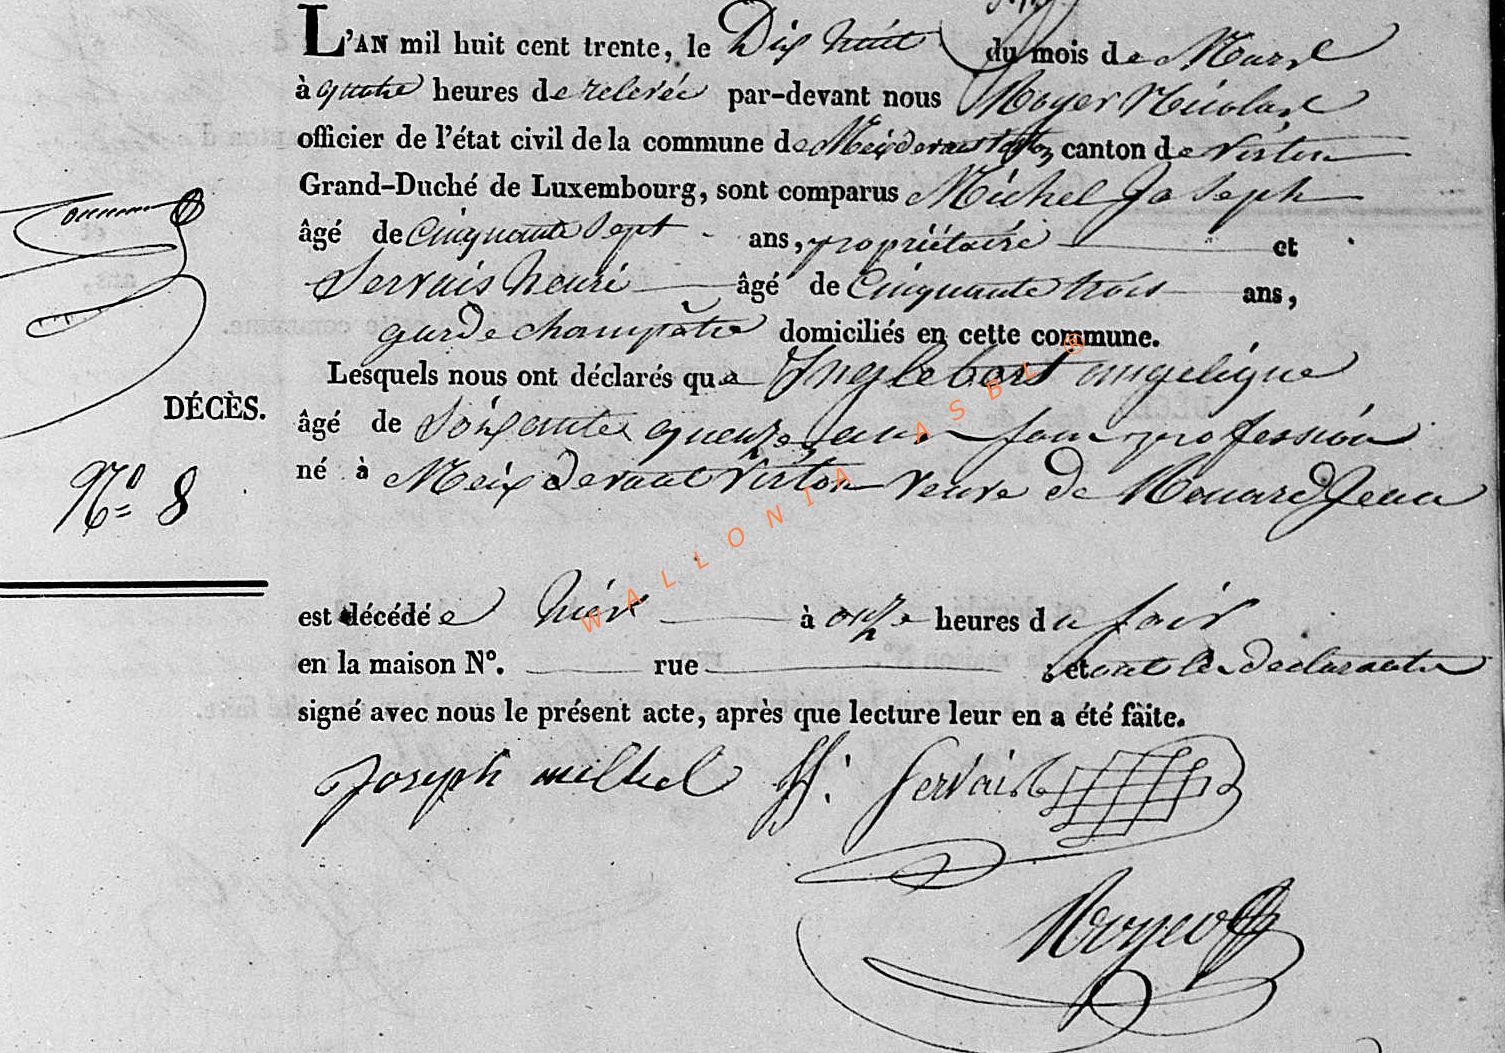 L'AN mil huit cent trente, le Dix huit du mois de Mars
à quatre heures de relevée par-devant nous Royer Nicolas
officier de l'état civil de la commune de Meix devant Virton canton de Virton
Grand-Duché de Luxembourg, sont comparus Michel Joseph
âgé de Cinquante Sept ans, propriétaire et
Servais henri âgé de Cinquante trois ans,
garde champêtre domiciliés en cette commune.
Lesquels nous ont déclarés que Inglebert angelique
DÉCÈS.
âgé de Soixante quenze ans sans profession
né à Meix devant Virton veuve de Rouard Jean
N° 8
est décédée hier à onze heures du soir
en la maison N°. rue et ont les declarants
signé avec nous le présent acte, après que lecture leur en a été faite.
Joseph michel H. Servais
Royer
WALLONIA ASBL ®